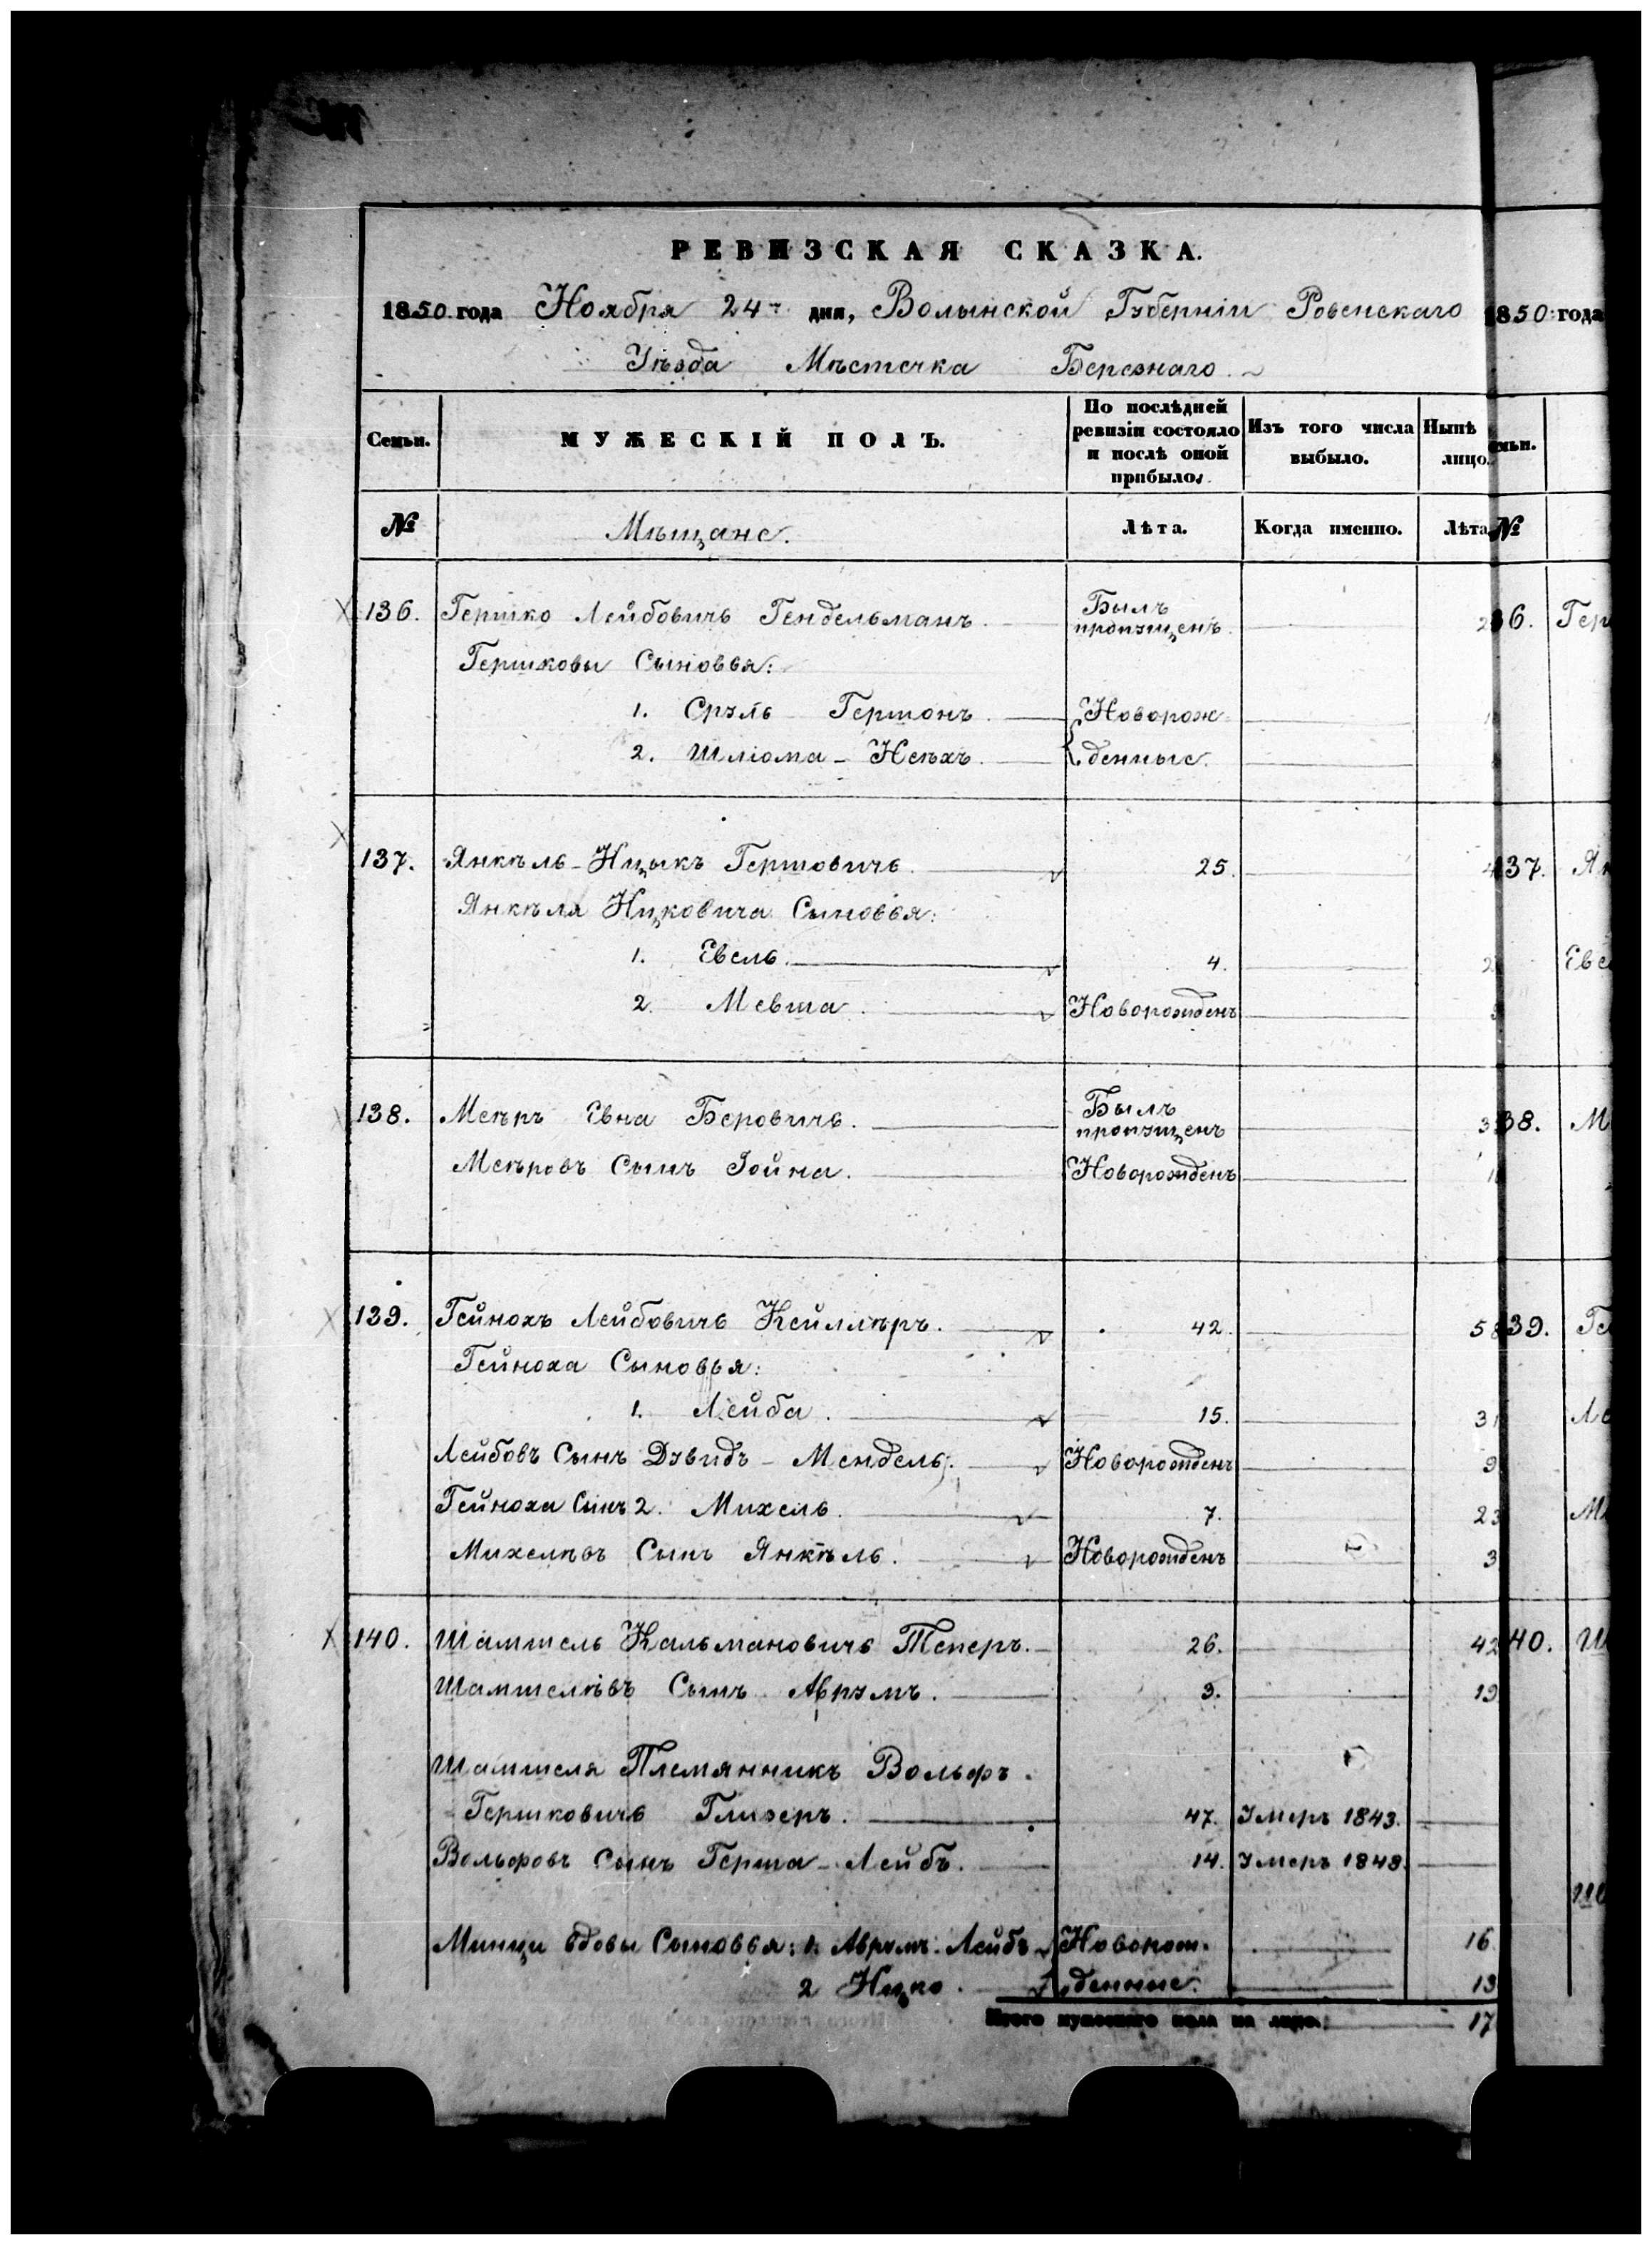 РЕВИЗСКАЯ СКАЗКА.
1850 года Ноября 24 дня, Волынской Губерніи Ровенскаго
Уѣзда Мѣстечка Березнаго
Семьи. МУЖЕСКІЙ ПОЛЪ. По послѣдней ревизіи состояло и послѣ оной прибыло. Изъ того числа выбыло. Нынѣ лицо.
№ Мѣщане. Лѣта. Когда именно. Лѣта
136. Гершко Лейбовичъ Гендельманъ. Былъ пропущенъ.
Гершковы Сыновья:
1. Сруль Гершонъ. Новорож
2. Шліома - Несъхъ. денные.
137. Янкѣль - Ицыкъ Гершовичъ. 25.
Янкѣля Ицковича Сыновья:
1. Евель. 4.
2. Мевша. Новорожденъ
138. Меѣръ Евна Беровичъ. Былъ пропущенъ
Меѣровъ Сынъ Іойна. Новорожденъ
139. Гейнохъ Лейбовичъ Кейллѣръ. 42. 58
Гейноха Сыновья:
1. Лейба. 15. 31
Лейбовъ Сынъ Дувидъ - Мендель. Новорожденъ 9
Гейноха Сынъ 2. Михель. 7. 23
Михелѣвъ Сынъ Янкѣль. Новорожденъ 3
140. Шамшель Кальмановичъ Теперъ. 26. 42
Шамшелѣвъ Сынъ Аврумъ. 3. 19
Шамшеля Племянникъ Вольфъ
Гершковичъ Глизеръ. 47. Умеръ 1843.
Вольфовъ Сынъ Герша - Лейбъ. 14. Умеръ 1848.
Минци вдовы Сыновья: 1. Аврумъ - Лейбъ Новорож 16
2 Ицко. денные. 13
Итого мужескаго пола на лицо. 17
1850 года
№
Гер
37. Ян
Еве
38. М
39. Ге
Ле
Ми
40. Ш